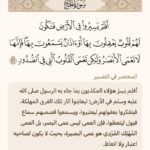 سورة الحج
أَفَلَمْ يَسِيرُوا۟ فِى ٱلْأَرْضِ فَتَكُونَ
لَهُمْ قُلُوبٌ يَعْقِلُونَ بِهَآ أَوْ ءَاذَانٌ يَسْمَعُونَ بِهَا فَإِنَّهَا
لَا تَعْمَى ٱلْأَبْصَٰرُ وَلَٰكِن تَعْمَى ٱلْقُلُوبُ ٱلَّتِى فِى ٱلصُّدُورِ
المختصر في التفسير
أفلم يسرْ هؤلاء المكذبون بما جاء به الرسول صلى الله
عليه وسلم في الأرض؛ ليعاينوا آثار تلك القرى المهلكة،
فيتفكروا بعقولهم ليعتبروا، ويسمعوا قصصهم سماع
قبول ليتعظوا، فإن العمى ليس عمى البصر، بل العمى
المُهْلِك المُرْدِي هو عمى البصيرة، بحيث لا يكون لصاحبه
اعتبار ولا اتعاظ.